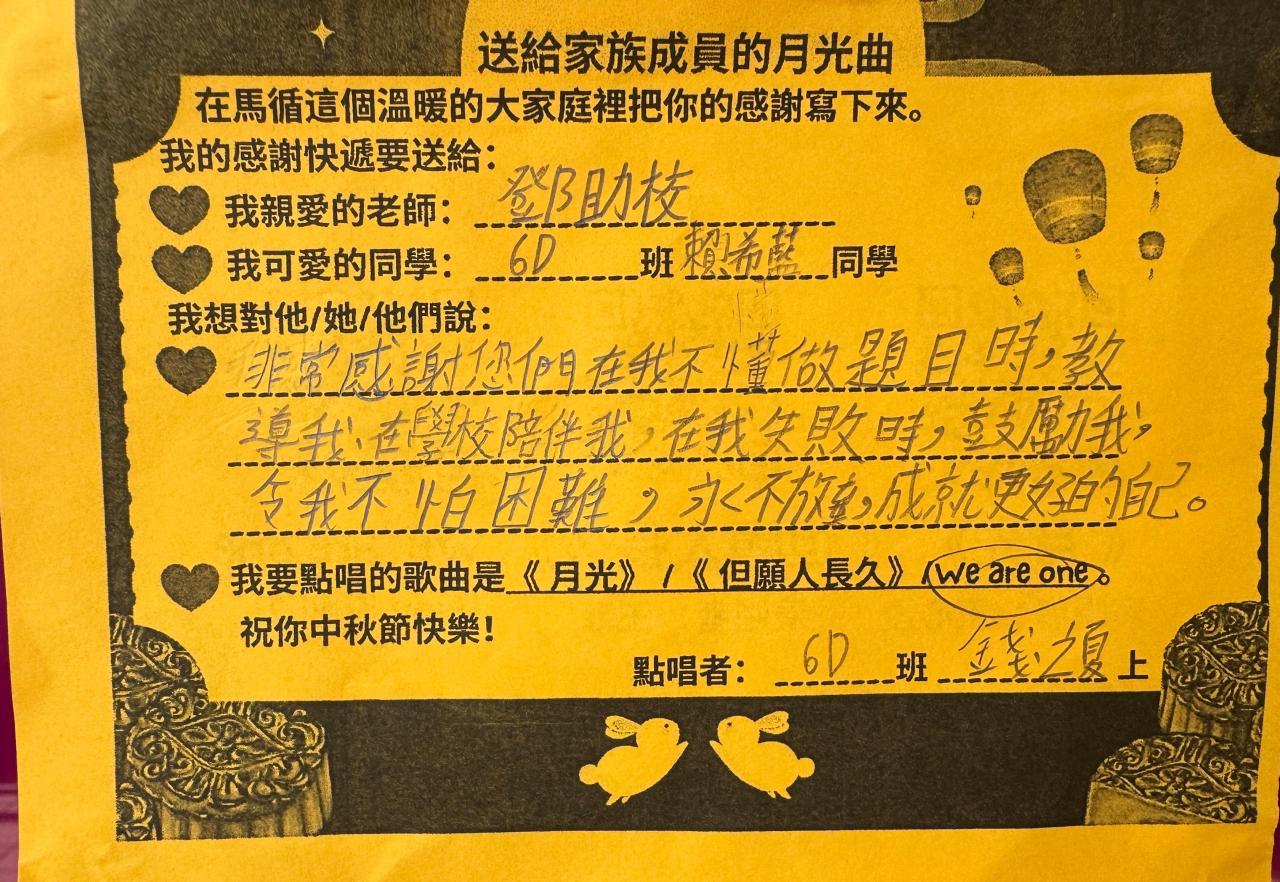 送給家族成員的月光曲
在馬循這個溫暖的大家庭裡把你的感謝寫下來。
我的感謝快遞要送給：
我親愛的老師：鄧助校
我可愛的同學：6D班賴希藍同學
我想對他/她/他們說：
非常感謝您們在我不懂做題目時，教
導我、在學校陪伴我，在我失敗時，鼓勵我，
令我不怕困難，永不放棄，成就更好的自己。
我要點唱的歌曲是《月光》/《但願人長久》/We are one。
祝你中秋節快樂！
點唱者：6D班錢之夏上